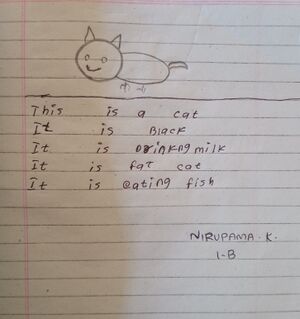 This is a cat
It is Black
It is Drinkng milk
It is fat cat
It is eating fish
NIRUPAMA.K.
1-B